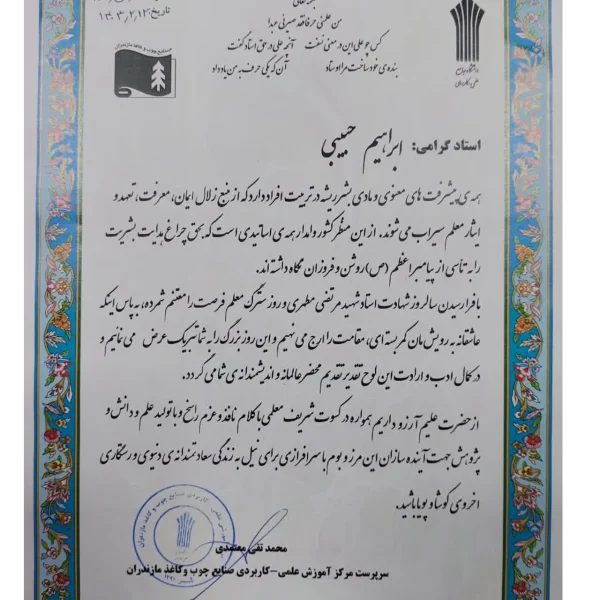 تاریخ: ۱۴۰۳،۲،۱۲
من علمنی حرفا فقد صیرنی عبدا
کس چو علی این در معنی نسفت آنچه علی در حق استاد گفت
بنده‌ی خود ساخت مرا اوستاد آن که یکی حرف به من یاد داد
صنایع چوب و کاغذ مازندران
دانشگاه جامع
علمی کاربردی
استاد گرامی: ابراهیم حبیبی
همه‌ی پیشرفت های معنوی و مادی بشر ریشه در تربیت افراد دارد که از منبع زلال ایمان، معرفت، تعهد و
ایثار معلم سیراب می شوند. از این منظر کشور وامدار همه‌ی اساتیدی است که بحق چراغ هدایت بشریت
را به تاسی از پیامبر اعظم (ص) روشن و فروزان نگاه داشته اند.
با فرا رسیدن سالروز شهادت استاد شهید مرتضی مطهری و روز سترگ معلم فرصت را مغتنم شمرده، به پاس اینکه
عاشقانه به رویش مان کمر بسته ای، مقامت را ارج می نهیم و این روز بزرگ را به شما تبریک عرض می نمائیم و
در کمال ادب و ارادت این لوح تقدیر تقدیم محضر عالمانه و اندیشمندانه ی شما می گردد.
از حضرت علیم آرزو داریم همواره در کسوت شریف معلمی با کلام نافذ و عزم راسخ و با تولید علم و دانش و
پژوهش جهت آینده سازان این مرز و بوم با سرافرازی برای نیل به زندگی سعادتمندانه ی دنیوی و رستگاری
اخروی کوشا و پویا باشید.
محمد تقی معتمدی
سرپرست مرکز آموزش علمی-کاربردی صنایع چوب و کاغذ مازندران